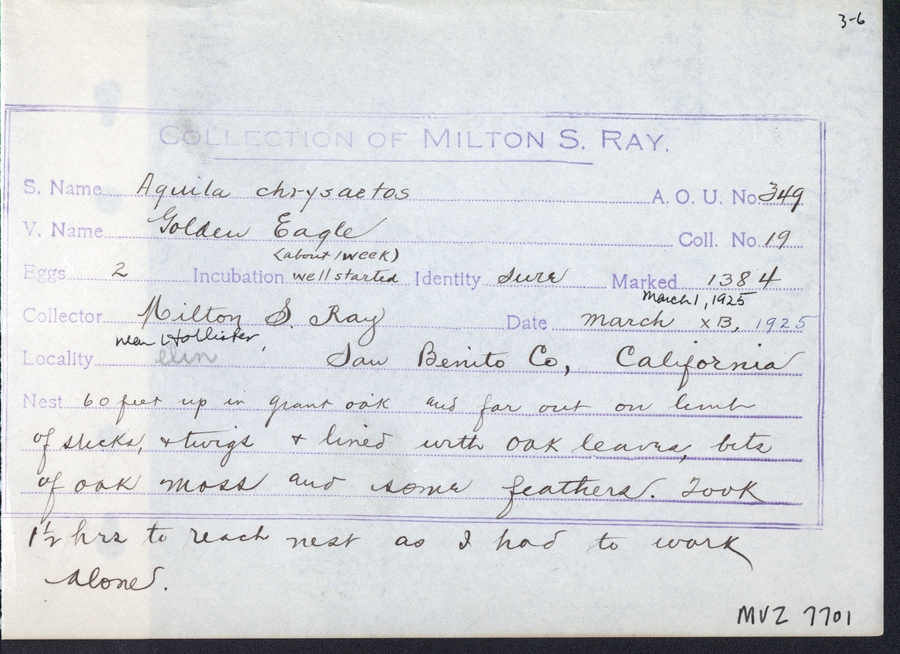 3-6
COLLECTION OF MILTON S. RAY.
S. Name Aquila chrysaetos A. O. U. No. 349
V. Name Golden Eagle Coll. No. 19
(about 1 week)
Eggs 2 Incubation well started Identity sure Marked 1384
March 1, 1925
Collector Milton S. Ray Date March 1925
near Hollister,
Locality San Benito Co, California
Nest 60 feet up in giant oak and far out on limb
of sticks, & twigs & lined with oak leaves, bits
of oak moss and some feathers. Took
1½ hrs to reach nest as I had to work
alone.
MVZ 7701